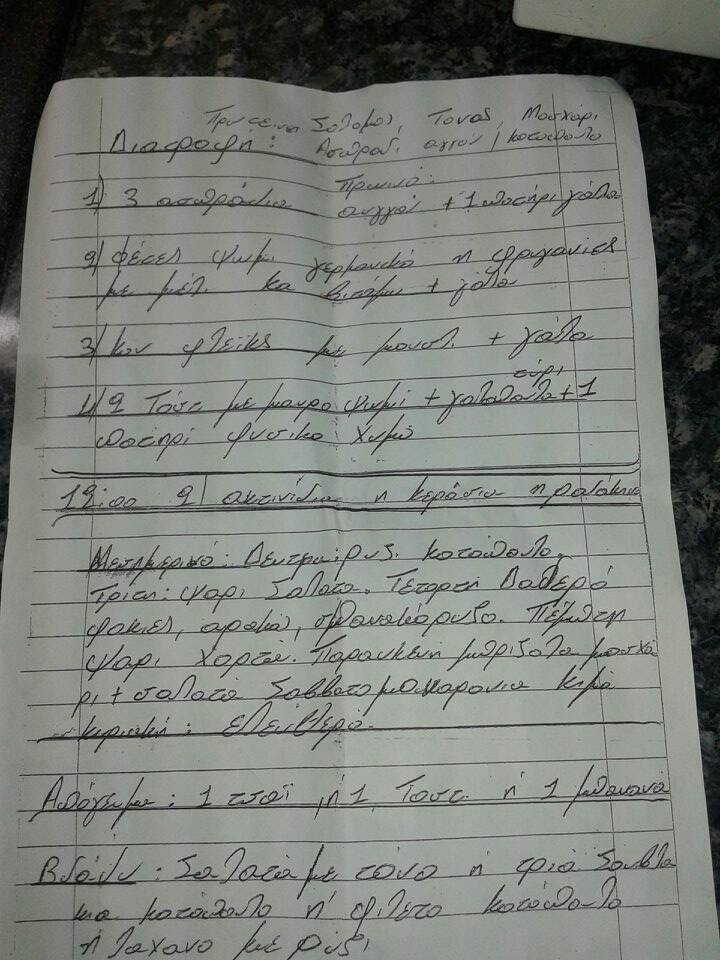 Πρωτεινη Σολομος, Τονος, Μοσχαρι
Διατροφή: Ασπραδι αυγου, κοτοπουλο
Πρωινό:
1) 3 ασπράδια αυγού + 1 ποτήρι γάλα
2) φέτες ψωμι γερμανικό η φρυγανιες
με μέλι και βιταμ + γάλα
3) κον φλεϊκς με μουσλι + γάλα
τύρι
4) 2 Τόστ με μαυρο ψωμί + γαλοπουλα + 1
ποτήρι φυσικο χυμό
12:00 2 ακτινίδια η κεράσια η ροδάκινα
Μεσημεριανό: Δευτερα: Ρυζι κοτόπουλο
Τρίτη: ψαρι Σαλατα. Τεταρτη Λαδερό
φακιες, αρακάς, σπανακόρυζο. Πέμπτη
ψαρι χορτα. Παρασκευή μπριζολα μοσχά
ρι + σαλατα Σαββατο μακαρονια κιμά
κυριακή: ελευθερο.
Απόγευμα: 1 τσαϊ, ή 1 Τοστ ή 1 μπανανα
Βράδυ: Σαλατα με τόνο ή τρια Σουβλα
κια κοτόπουλο ή φιλετο κοτόπουλο
ή λαχανο με ρύζι